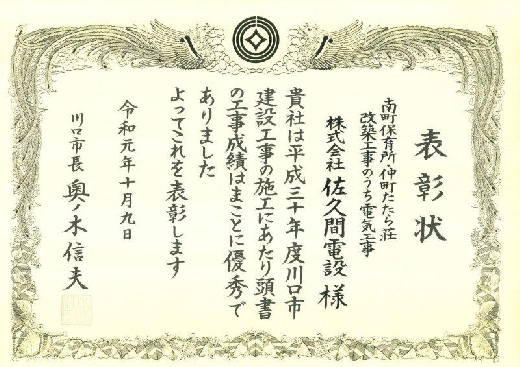 表彰状
南町保育所仲町たたら荘
改築工事のうち電気工事
株式会社 佐久間電設 様
貴社は平成三十年度川口市
建設工事の施工にあたり頭書
の工事成績はまことに優秀で
ありました
よってこれを表彰します
令和元年十月九日
川口市長 奥ノ木信夫